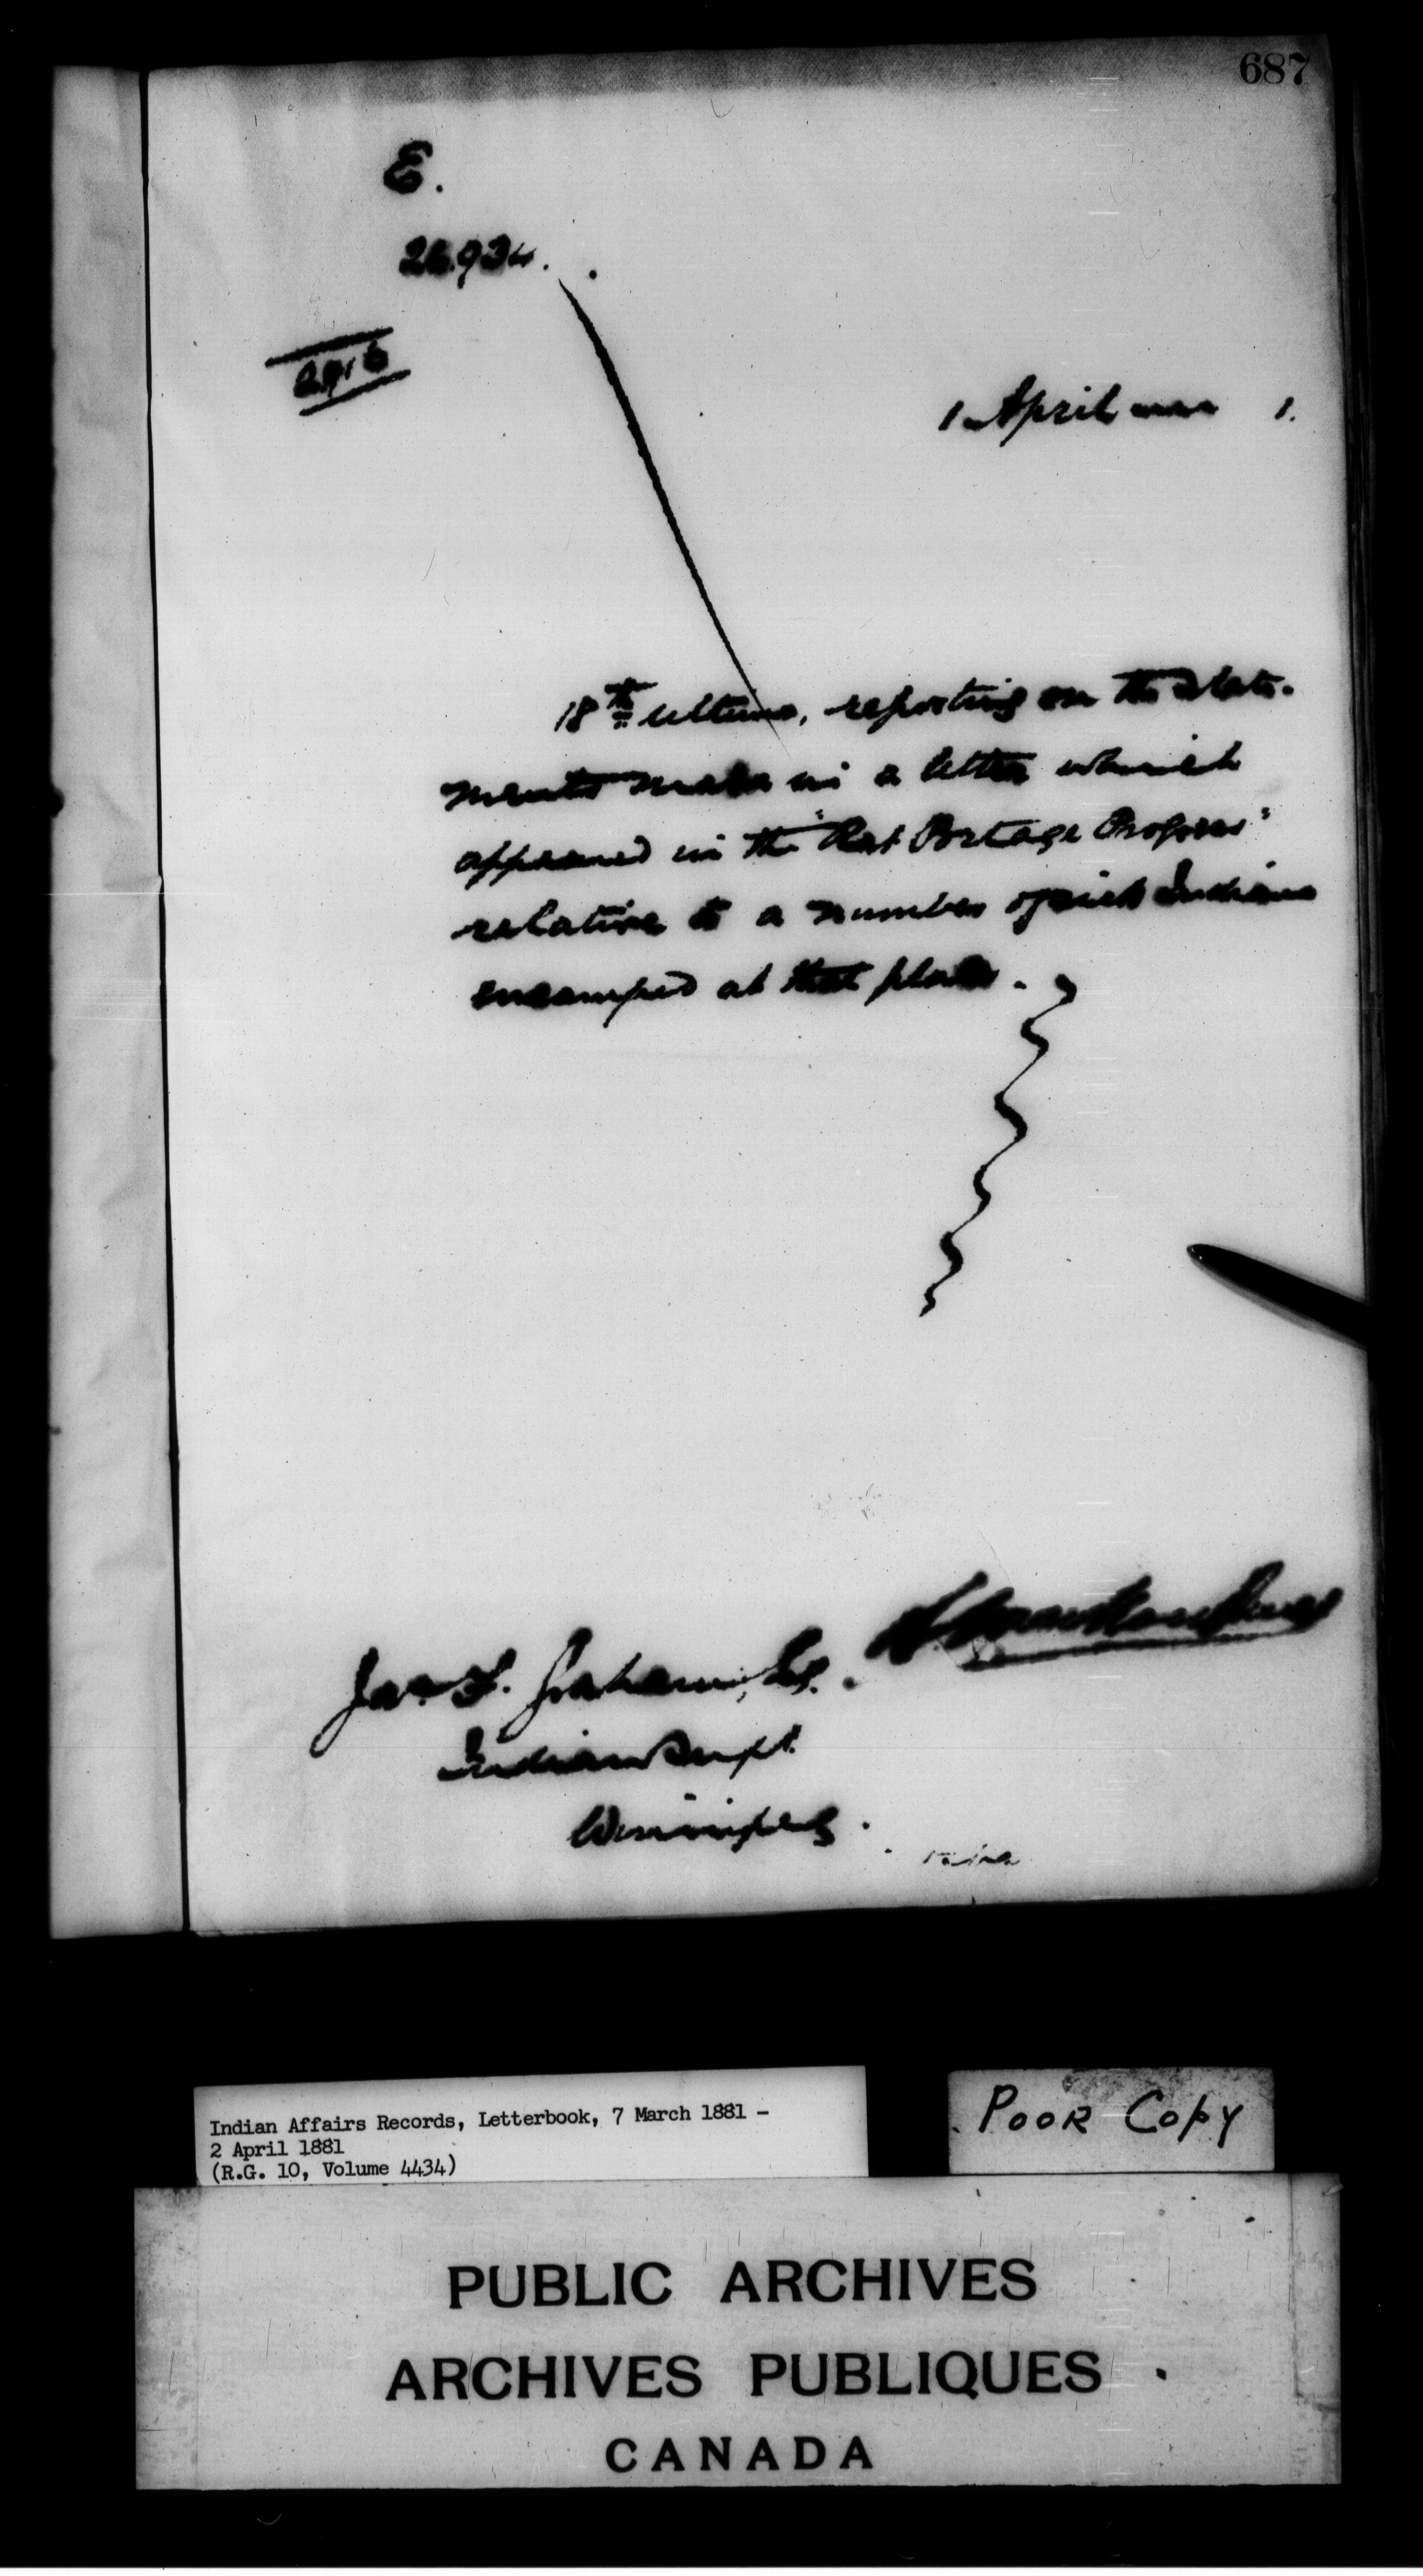 687
E.
26.934.
1 April 1.
18th ultimo, reporting on the state-
ments made in a letter which
appeared in the "Rat Portage Progress"
relative to a number of sick Indians
encamped at that place.
Jas. F. Graham, Esq.
Indian Supt.
Winnipeg.
Indian Affairs Records, Letterbook, 7 March 1881 -
2 April 1881
(R.G. 10, Volume 4434)
POOR COPY
PUBLIC ARCHIVES
ARCHIVES PUBLIQUES
CANADA